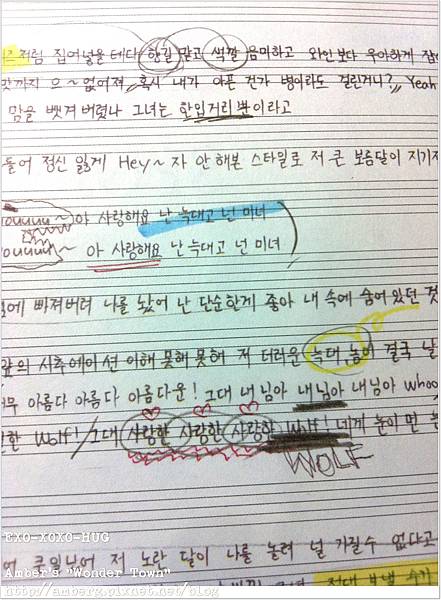 처럼 집어넣을테다 향길 맡고 색깔 음미하고 와인보다 우아하게 잡
까지 으~ 없어져 혹시 내가 아픈 건가 병이라도 걸린거니? Yeah
맘을 뺏겨버렸나 그녀는 한입거리뿐이라고
들어 정신 잃게 Hey~ 자 안 해본 스타일로 저 큰 보름달이 지기
ouuuu~ 아 사랑해요 난 늑대고 넌 미녀
ouuuu~ 아 사랑해요 난 늑대고 넌 미녀
에 빠져버려 나를 놨어 난 단순한게 좋아 내 속에 숨어있던 것
의 시추에이션 이해 못해 못해 저 더러운 늑대 놈이 결국 날
아름다 아름다 아름다운! 그대 내님아 내님아 내님아 Whoo
한 Wolf! 그대 사랑한 사랑한 사랑한 Wolf! 네게 눈이 먼
WOLF
EXO-XOXO-HUG
저 노란 달이 나를 놀려 널 가질수 없다고
Amber's "Wonder Town"
http://amberg.pixnet.net/blog